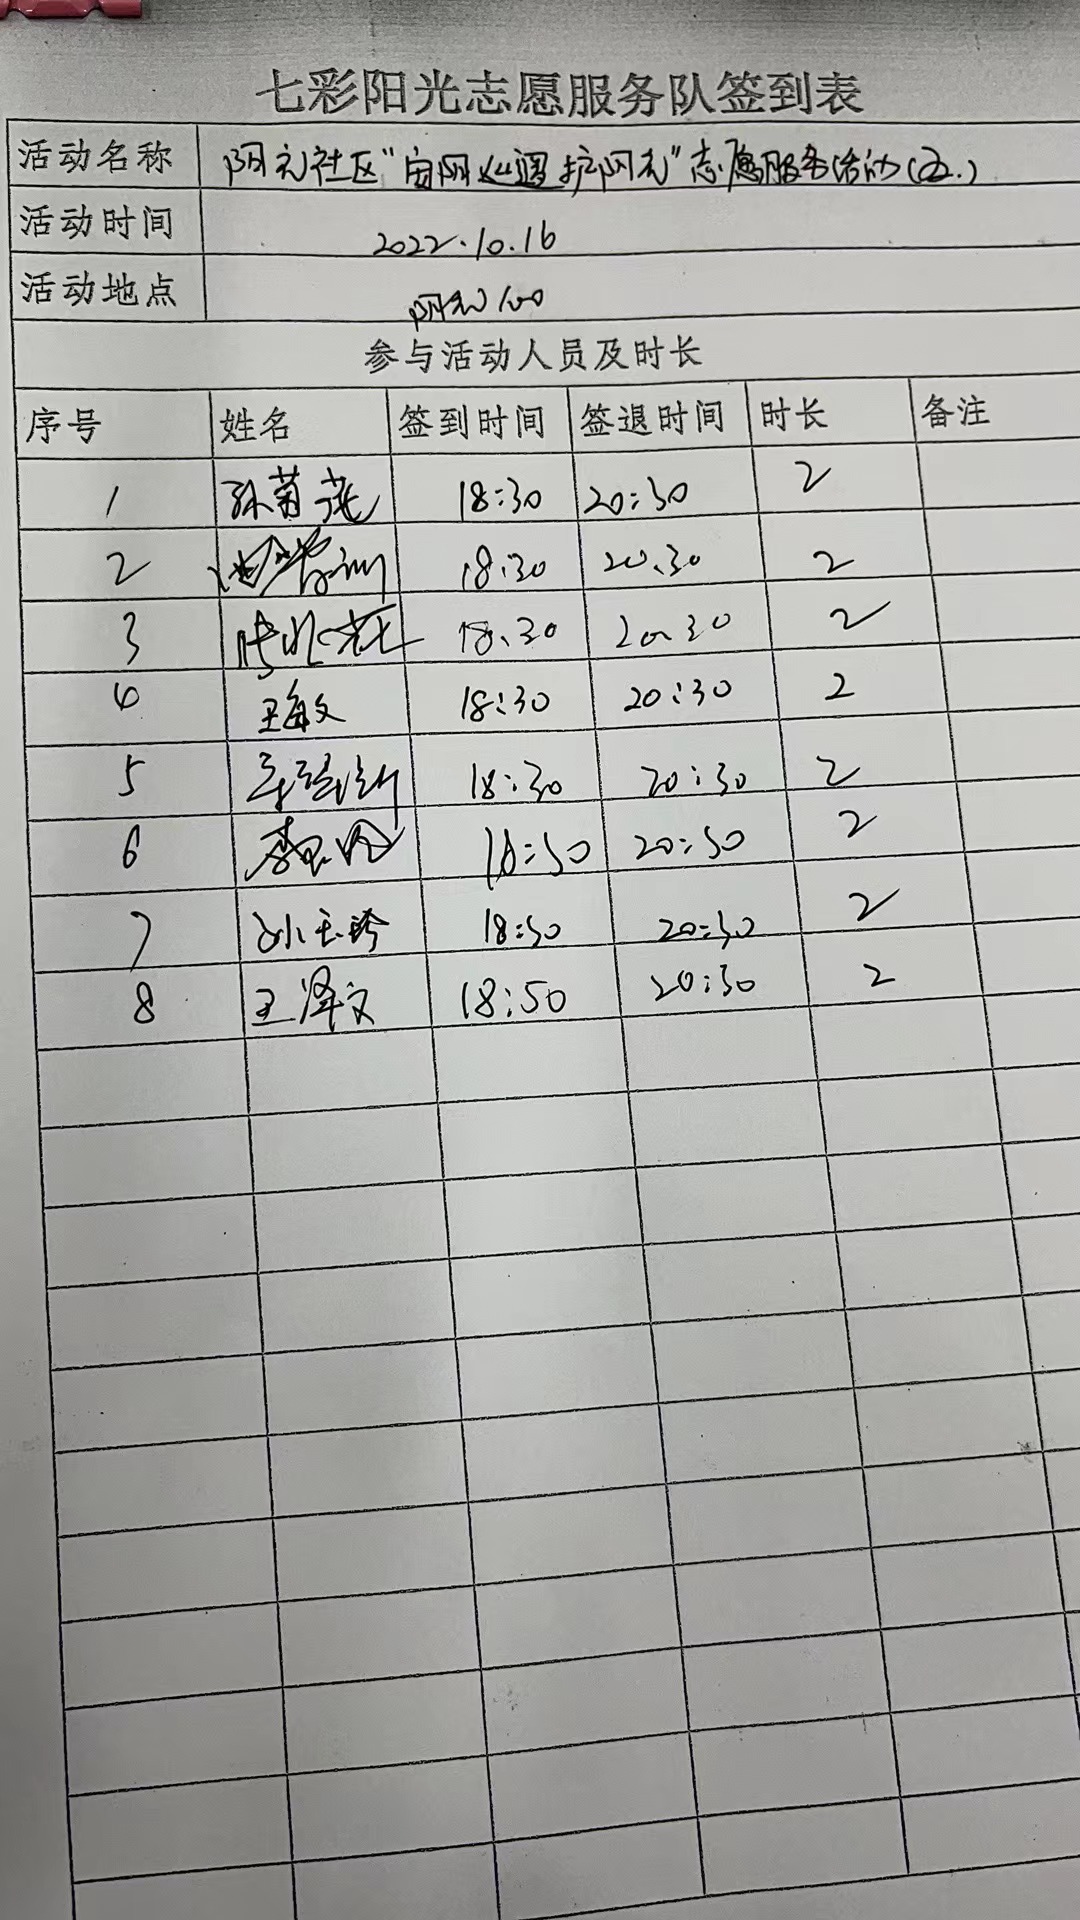 七彩阳光志愿服务队签到表
活动名称 阳光社区"志愿服务活动(五.)
活动时间 2022.10.16
活动地点 阳光100
参与活动人员及时长
序号 姓名 签到时间 签退时间 时长 备注
1 孙菊花 18:30 20:30 2
2 18:30 20.30 2
3 18.30 20.30 2
4 王敏文 18:30 20:30 2
5 18:30 20:30 2
6 18:30 20:30 2
7 刘玉玲 18:30 20:30 2
8 王泽文 18:50 20:30 2